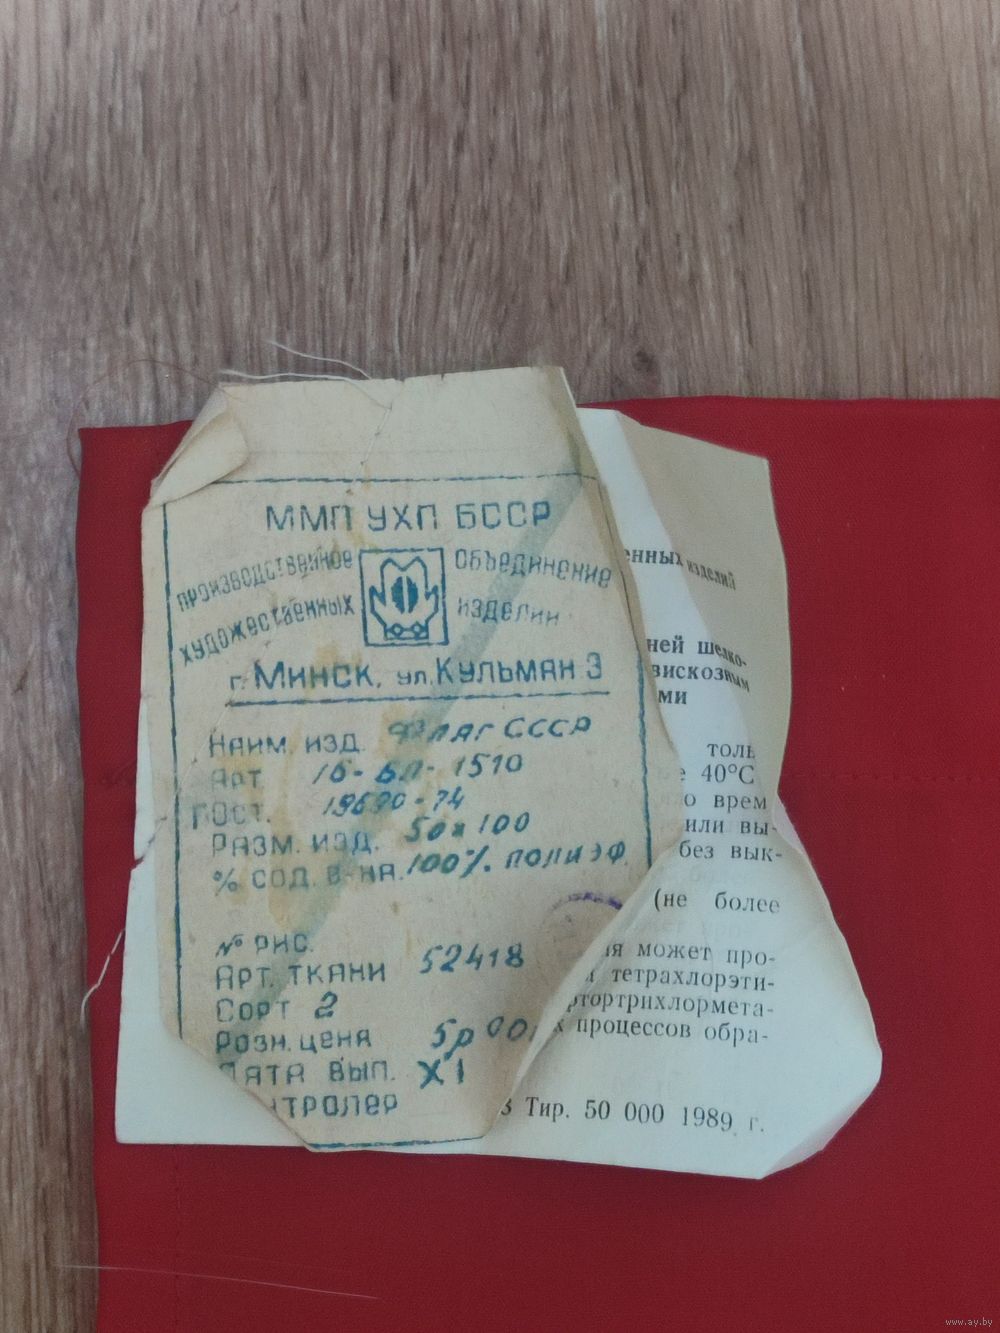 ММП УХП БССР
ПРОИЗВОДСТВЕННОЕ ОБЪЕДИНЕНИЕ
ХУДОЖЕСТВЕННЫХ ИЗДЕЛИЙ
г. МИНСК, ул. КУЛЬМАН 3
НАИМ. ИЗД. Флаг СССР
АРТ 16-БЛ-1510
ГОСТ. 19670-74
РАЗМ. ИЗД. 50х100
% СОД. В-НА. 100% полиэф.
№ РИС.
АРТ. ТКАНИ 52418
СОРТ 2
РОЗН. ЦЕНА 5р 00
ДАТА ВЫП. XI
НТРОЛЕР
енных изделий
ней шелко-
вискозным
ми
толь
е 40°С
о врем
или вы-
без вык-
(не более
ия может про-
и тетрахлорэти-
ртортрихлормета-
х процессов обра-
з Тир. 50 000 1989 г.
www.ay.by